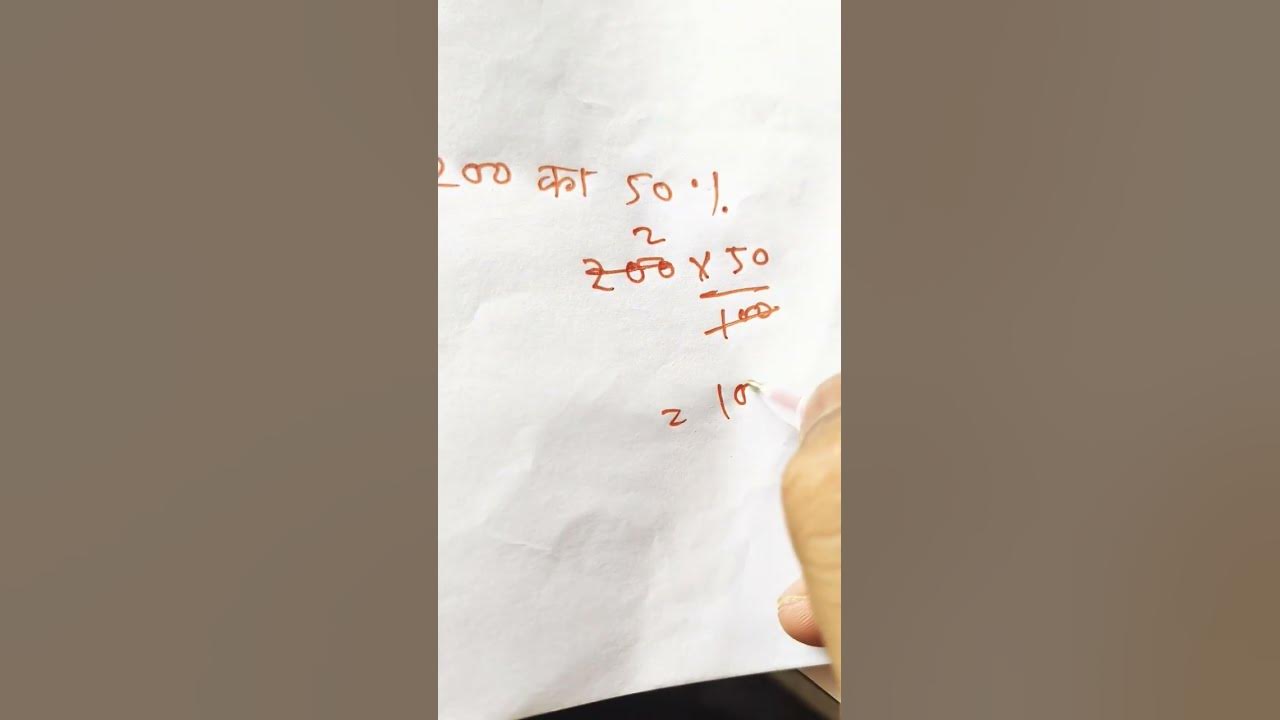 200 का 50%
2
200 × 50
100
= 10